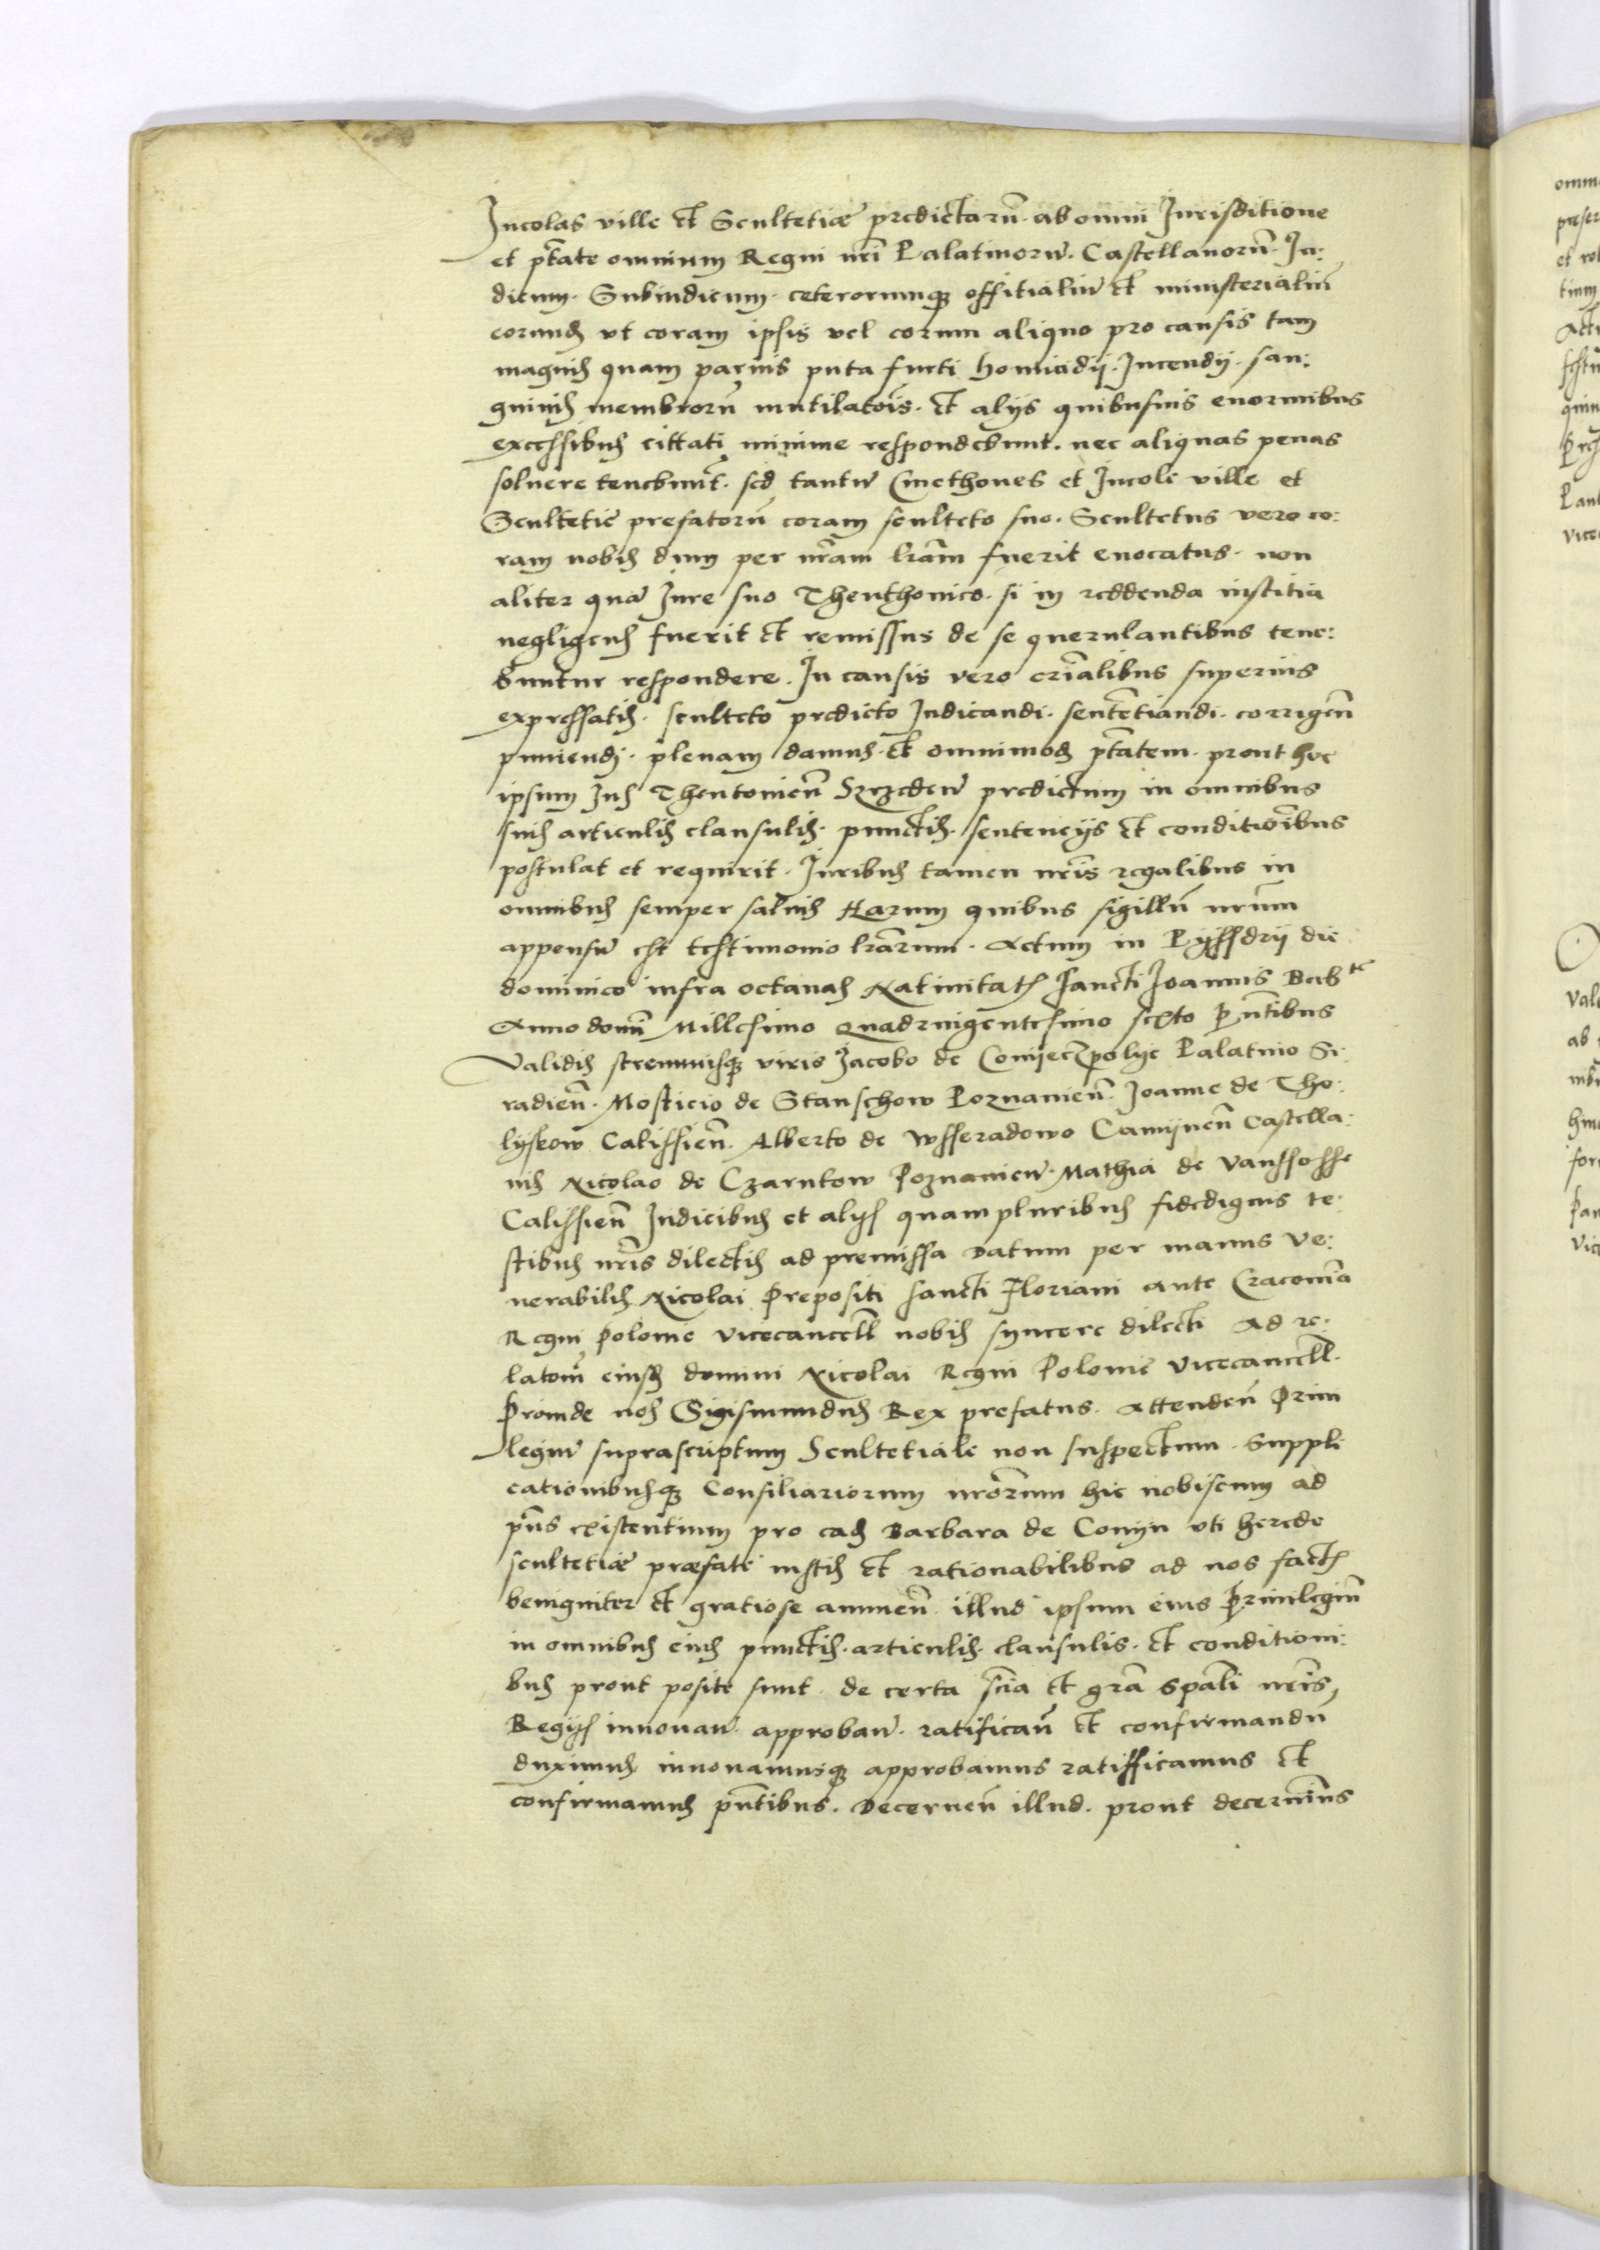 Incolas ville et Scultetiæ predictarū ab omni Jurisditione
et ptāte omnium Regni nrī Palatinorū. Castellanorū. Ju:
dicum. Subiudicum. ceterorumq; offitialiū et ministerialiū
eorund. vt coram ipsis vel eorum aliquo pro causis tam
magnis quam paruis puta furti homicidij. Incendij. san:
guinis membrorū mutilatōis. et alijs quibusuis enormibus
excessibus cittati minime respondebunt. nec aliquas penas
soluere tenebunt̄. sed tantū Cmethones et Incole ville et
Scultetie prefatorū coram sculteto suo. Scultetus vero co:
ram nobis dum per nrām lrām fuerit euocatus. non
aliter quā Jure suo Theuthonico. si in reddenda iustitia
negligens fuerit et remissus de se querulantibus tene:
buntur respondere. In causis vero crīalibus superius
expressatis. sculteto predicto Judicandi. sentētiandi. corrigen̄
puniendi. plenam damus et omnimod ptātem. prout hoc
ipsum Jus Theutonicū Srzeden̄ predictum in omnibus
suis articulis clausulis. punctis. sentencijs et conditiōibus
postulat et requirit. Juribus tamen nrīs regalibus in
omnibus semper saluis Harum quibus sigillū nrūm
appensū est testimonio lrārum. Actum in Pyssdrij die
dominico infra octauas Natiuitatis sancti Joannis Bab^te
Anno domī Millesimo Quadringentesimo sexto pn̄tibus
Validis strennuisq; viris Jacobo de Conijeczpolije Palatino Si:
radien̄. Mosticio de Stanschow Poznanien̄. Joanne de Tho:
lyskow Calissien̄. Alberto de Wsseradowo Camijnen̄ Castella:
nis Nicolao de Czarnkow Poznanien̄. Mathia de Vanssosse
Calissien̄ Judicibus et alijs quampluribus fidedignis te:
stibus nrīs dilectis ad premissa Datum per manus Ve:
nerabilis Nicolai Prepositi sancti Floriani ante Cracouia
Regni Polonie Vicecancell nobis syncere dilecti Ad re:
latōm eiusd domini Nicolai Regni Polonie Vicecancell.
Proinde nos Sigismundus Rex prefatus. Attenden̄ Priui
legiū suprascriptum Scultetiale non suspectum. Suppli
cationibusq; Consiliariorum nrōrum hic nobiscum ad
pn̄s existentium pro ead Barbara de Conijn vti herede
scultetiæ præfate iustis et rationabilibus ad nos factis
benigniter et gratiose annuen̄ illud ipsum eius Priuilegiū
in omnibus eius punctis. articulis. clausulis. et conditioni:
bus prout posite sunt. de certa scīa et grā spāli nrīs
Regijs innouan̄. approban̄. ratifican̄ et confirmandū
duximus innouamusq; approbamus ratifficamus et
confirmamus pn̄tibus. Decernen̄ illud. prout decernimus